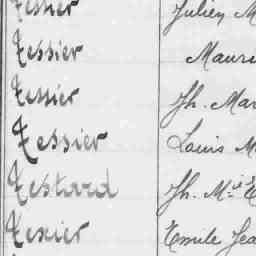 Tessier Julien M
Tessier Mauri
Tessier Jh. Mar
Tessier Louis M
Testard Jh. M.ie E
Texier Emile Jea